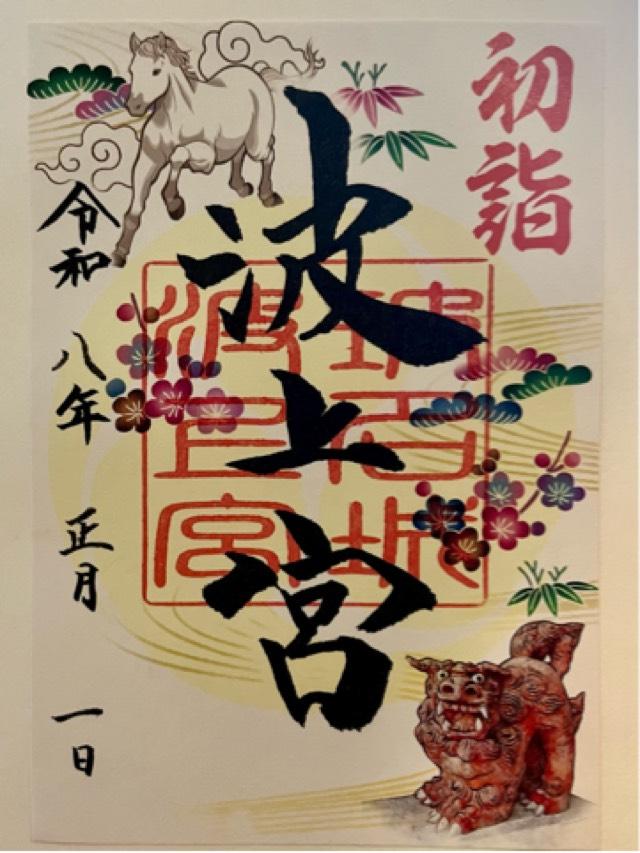 初詣
琉球城
波上宮
波上宮
令和 八年 正月 一日